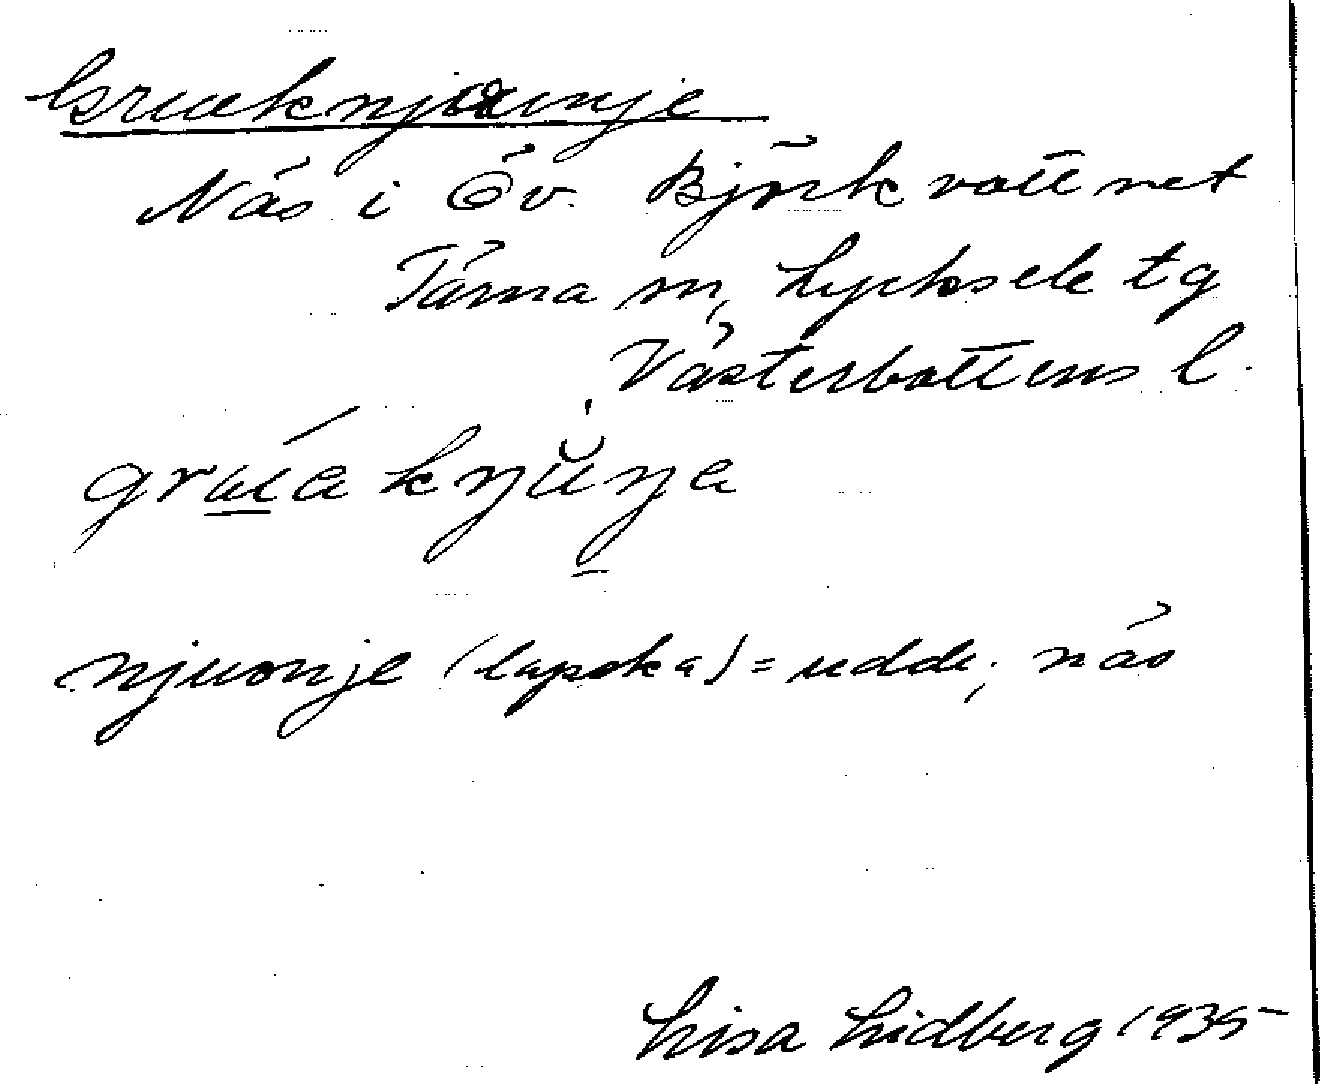 Gruaknjaunje
Näs i Öv. Björkvattnet
Tärna sn, Lycksele tg
Västerbottens l.
njuonje (lapska) = udde, näs
Lisa Lidberg 1935